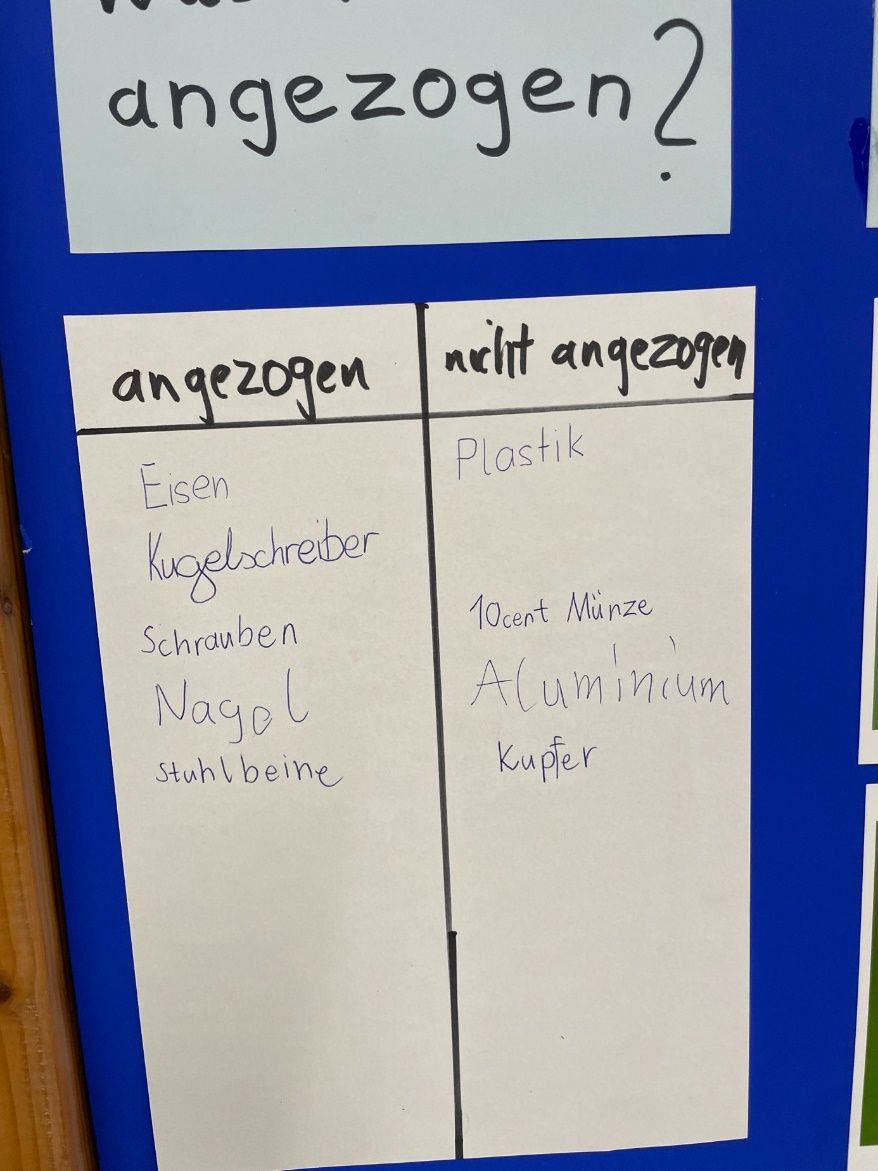 angezogen?
angezogen
nicht angezogen
Eisen
Kugelschreiber
Schrauben
Nagel
Stuhlbeine
Plastik
10cent Münze
Aluminium
Kupfer